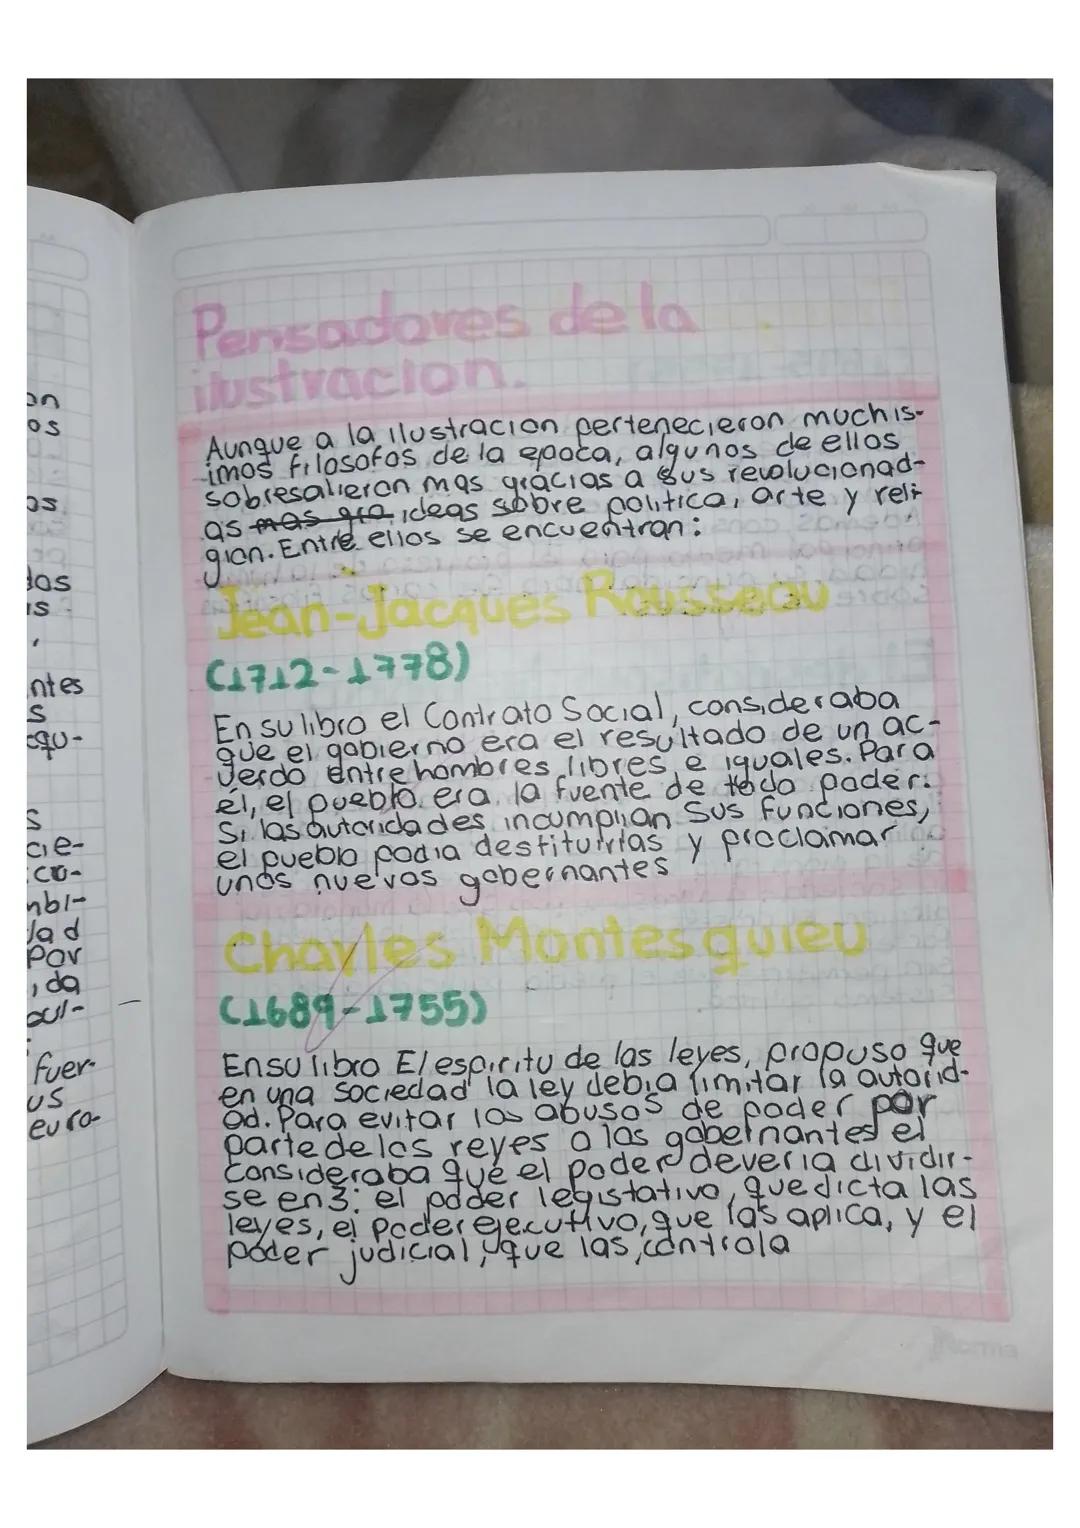 Pensadores de la
ilustracion.
Aunque a la ilustracion pertenecieron muchis-
imos filosofos de la epoca, algunos de ellos
sobresalieron mas gracias a sus revolucionad-
as mas gra ideas sobre politica, arte y reli-
gion. Entre ellos se encuentran:
Jean-Jacques Rousseau
(1712-1778)
En su libro el Contrato Social, consideraba
que el gobierno era el resultado de un ac-
uerdo entre hombres libres e iguales. Para
él, el pueblo era la fuente de todo poder.
Si las autoridades incumplian sus funciones,
el pueblo podia destituirlas y proclamar
unos nuevos gobernantes
Charles Montesquieu
(1689-1755)
En su libro El espiritu de las leyes, propuso que
en una sociedad la ley debia limitar la autorid-
ad. Para evitar los abusos de poder por
parte de los reyes o los gobernantes el
consideraba que el poder deveria dividir-
se en 3: el poder legistativo, que dicta las
leyes, el poder ejecutivo, que las aplica, y el
poder judicial, que las controla
Norma
on
os
os
dos
is
,
ntes
s
cqu-
s
cie-
co-
mbi-
dad
Por
, da
cul-
fuer-
us
euro-